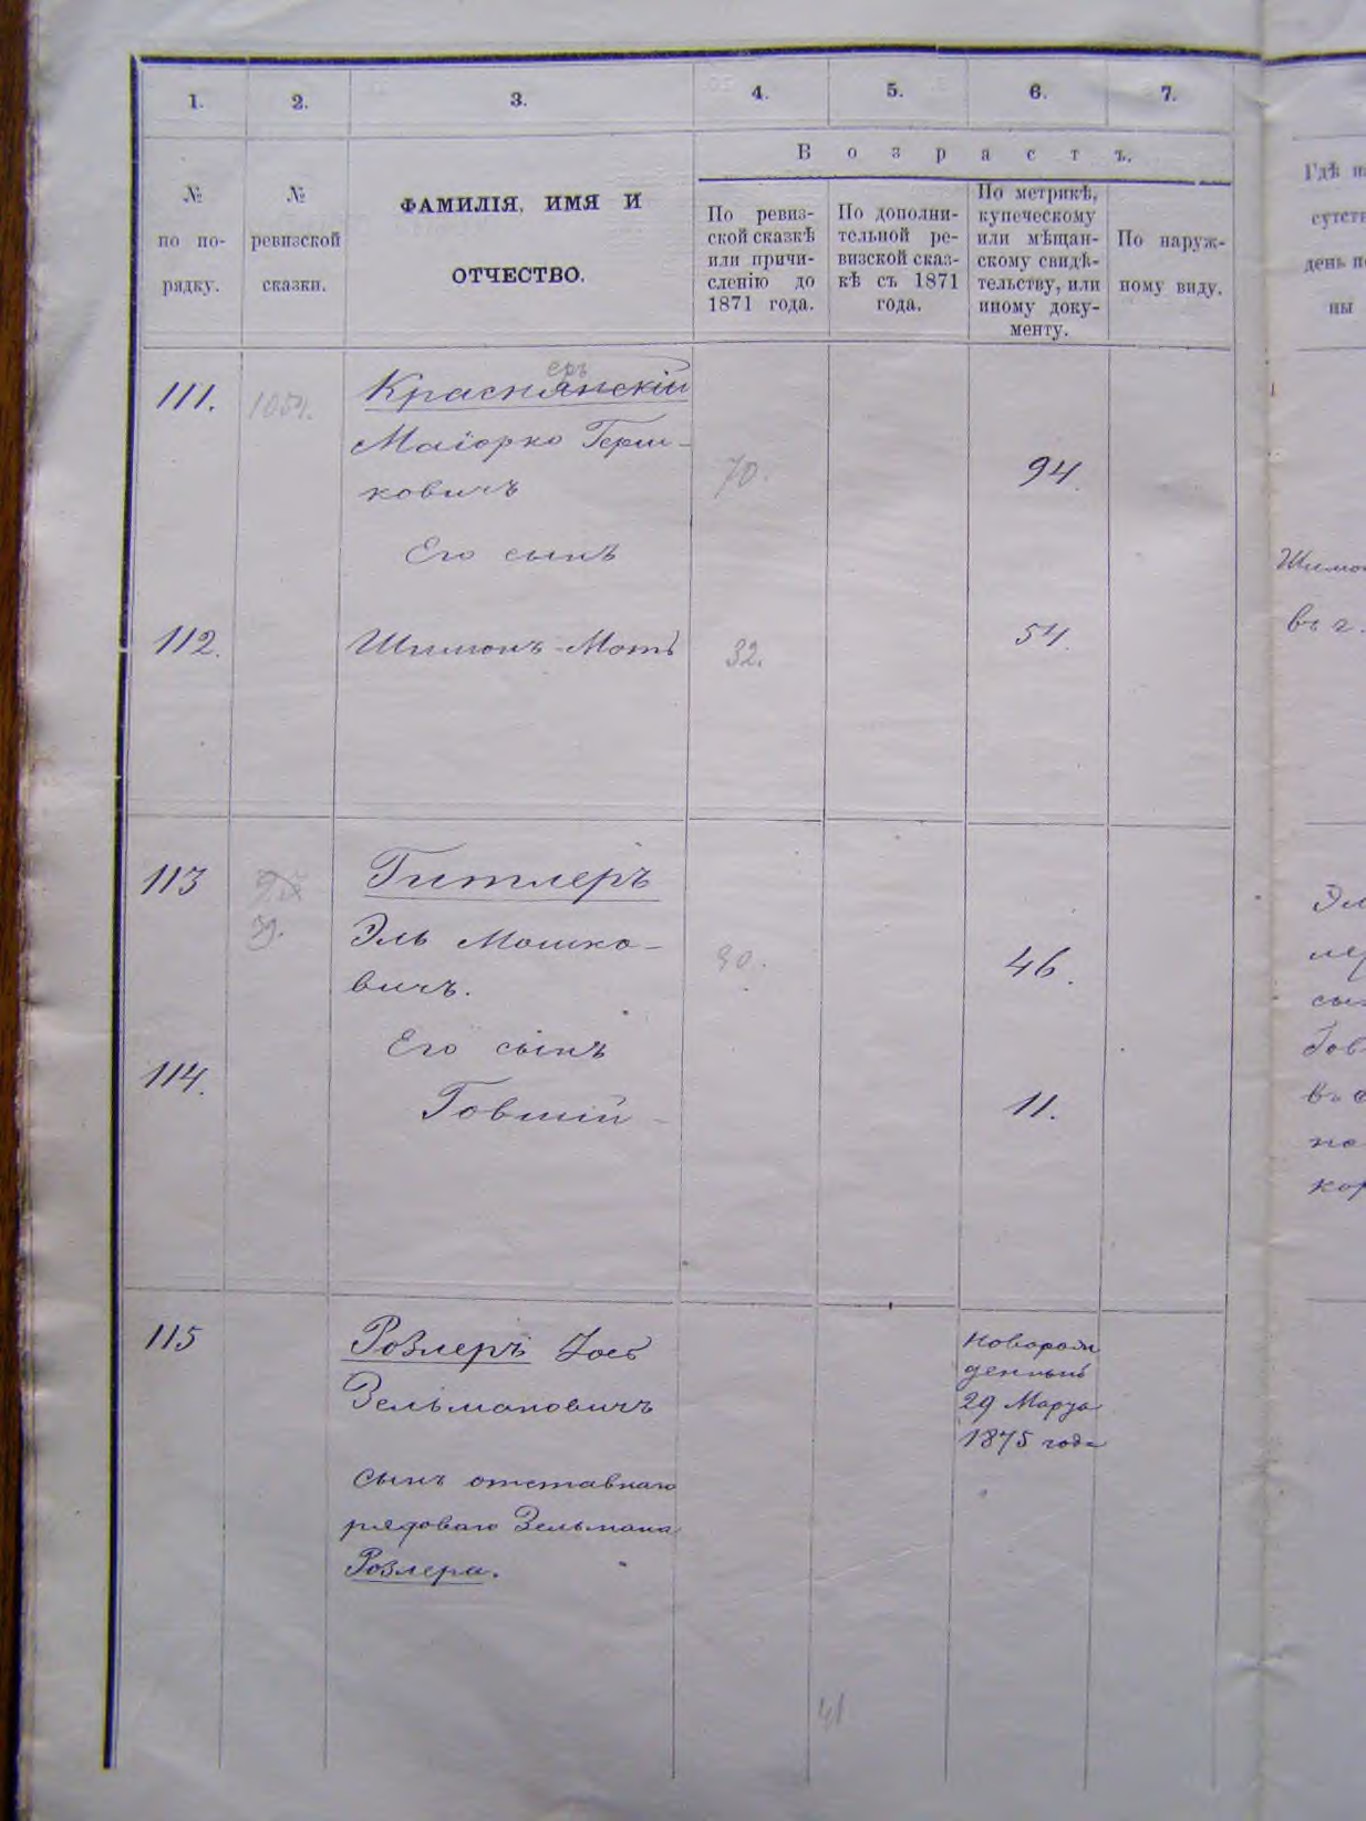 1. 2. 3. 4. 5. 6. 7.
№ по по-рядку.
№ ревизской сказки.
ФАМИЛІЯ, ИМЯ И
ОТЧЕСТВО.
Возрастъ.
По ревиз-
ской сказкѣ
или причи-
сленію до
1871 года.
По дополни-
тельной ре-
визской сказ-
кѣ съ 1871
года.
По метрикѣ,
купеческому
или мѣщан-
скому свидѣ-
тельству, или
иному доку-
менту.
По наруж-
ному виду.
Гдѣ
день
ны
111. 1054. Краснянскій 
еръ
Маіорко Герш-
ковичъ 70. 94.
Его сынъ
112. Шимонъ-Мот 32. 54.
113 Гитлеръ
39. Эль Мошко-
вичъ. 30. 46.
Его сынъ
114. Говший 11.
115 Розлеръ Іос
Зельмановичъ
сынъ отставнаго
рядоваго Зельмана
Розлера.
Новорож
денный
29 Марта
1875 года
въ г.
41